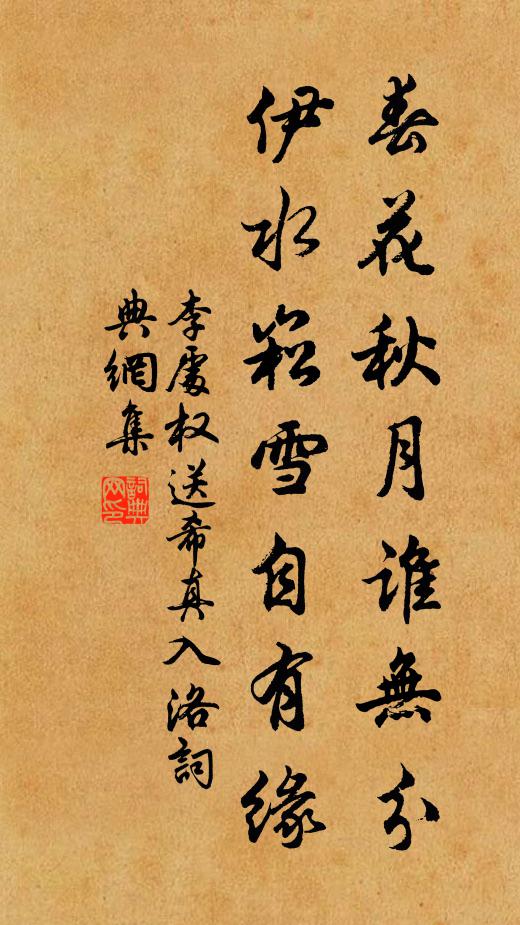 春花秋月誰無分
伊水嵩雪自有緣
李處权送希真入洛詞
典網集
詞典
网印